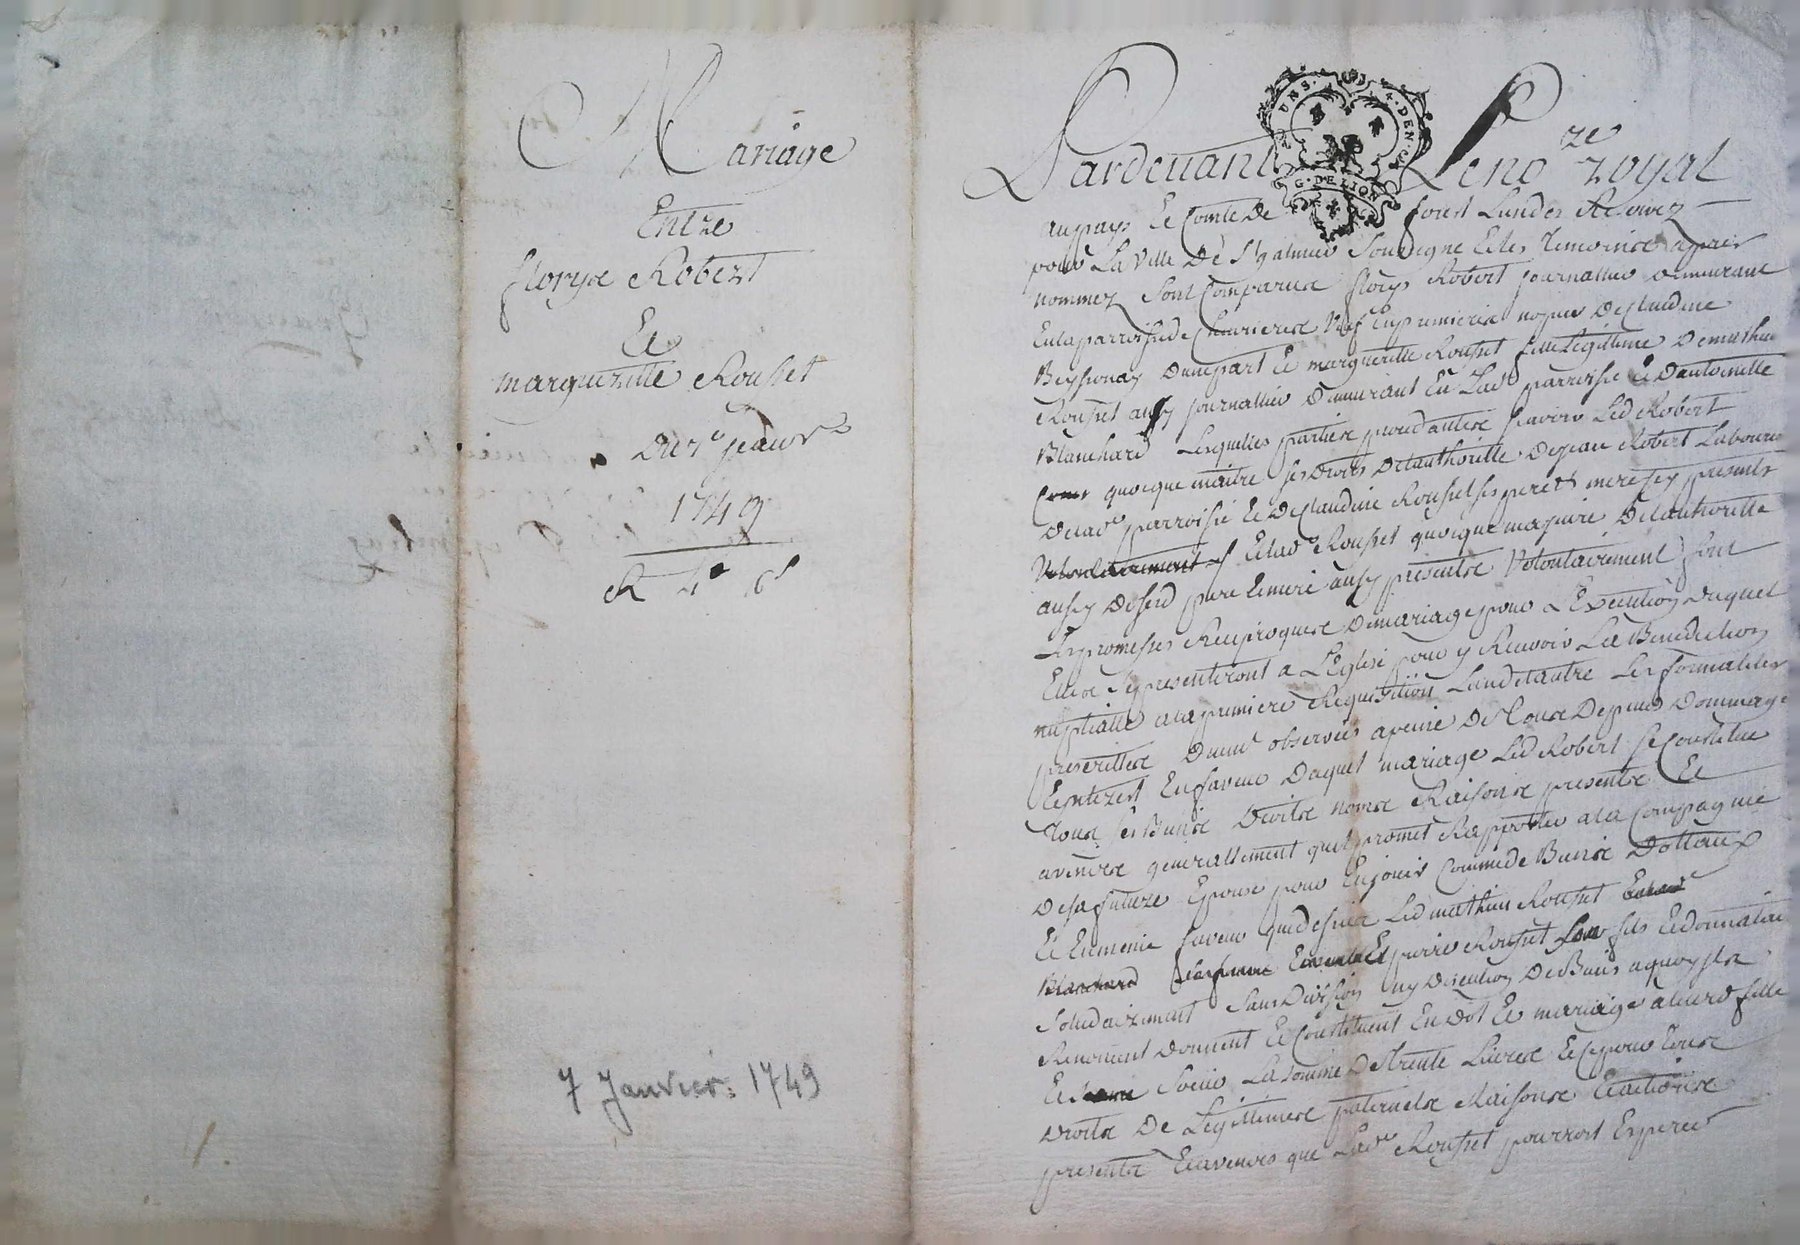 Mariage
Entre
florys Robert
Et
margueritte Rousset
Du 7e janvr
1749
R 4# 6s
7 Janvier 1749
1/.
G. DE LION
Pardevant Le nore royal
au pays et Comté de forest Lundes Reservez
pour La Ville de St galmier Soussigné et les Temoins apres
nommez Sont Comparus florys Robert journallier demeurant
En la parroisse de Chevrieres Veuf En premieres nopces de Claudine
Beyssonay d'une part Et margueritte Rousset fille Legittime de mathieu
Rousset aussy journallier demeurant En Lade parroisse et d'antoinette
Blanchard Lesquelles parties procedantes scavoir Led Robert
quoique maitre ses droits de L'authoritté de jean Robert Laboureur
de lade parroisse Et de Claudine Rousset ses pere et mere icy presents
Et lade Rousset quoique majeure de L'authoritté
aussy de sesd pere et mere aussy presents Volontairement font
Les promesses Reciproques de mariage pour L'Execution duquel
Elles se presenteront a L'Eglise pour y Recevoir La Benediction
nuptialle a la premiere Requisition L'un de L'autre Les formalités
prescrittes duem observées a peine de Tous Depens dommages
Et interest En faveur duquel mariage Led Robert se Constitue
Tous ses Biens droits noms Raisons presents Et
avenirs generallement quil promet Rapporter a la Compagnie
de sa future Epouse pour En jouir Comme de Biens dottaux
Et En meme faveur que dessus Led mathieu Rousset
Blanchard Et pierre Rousset son fils Et donnataire
Solidairement Sans Division ny discution de Biens a quoy ils
Renoncent donnent Et Constituent En dot Et mariage a leurd fille
Et Soeur La somme de Trente Livres Et ce pour tous
droits de Legittimes paternels Raisons Et actions
presents Et avenirs que Lade Rousset pourroit Esperer